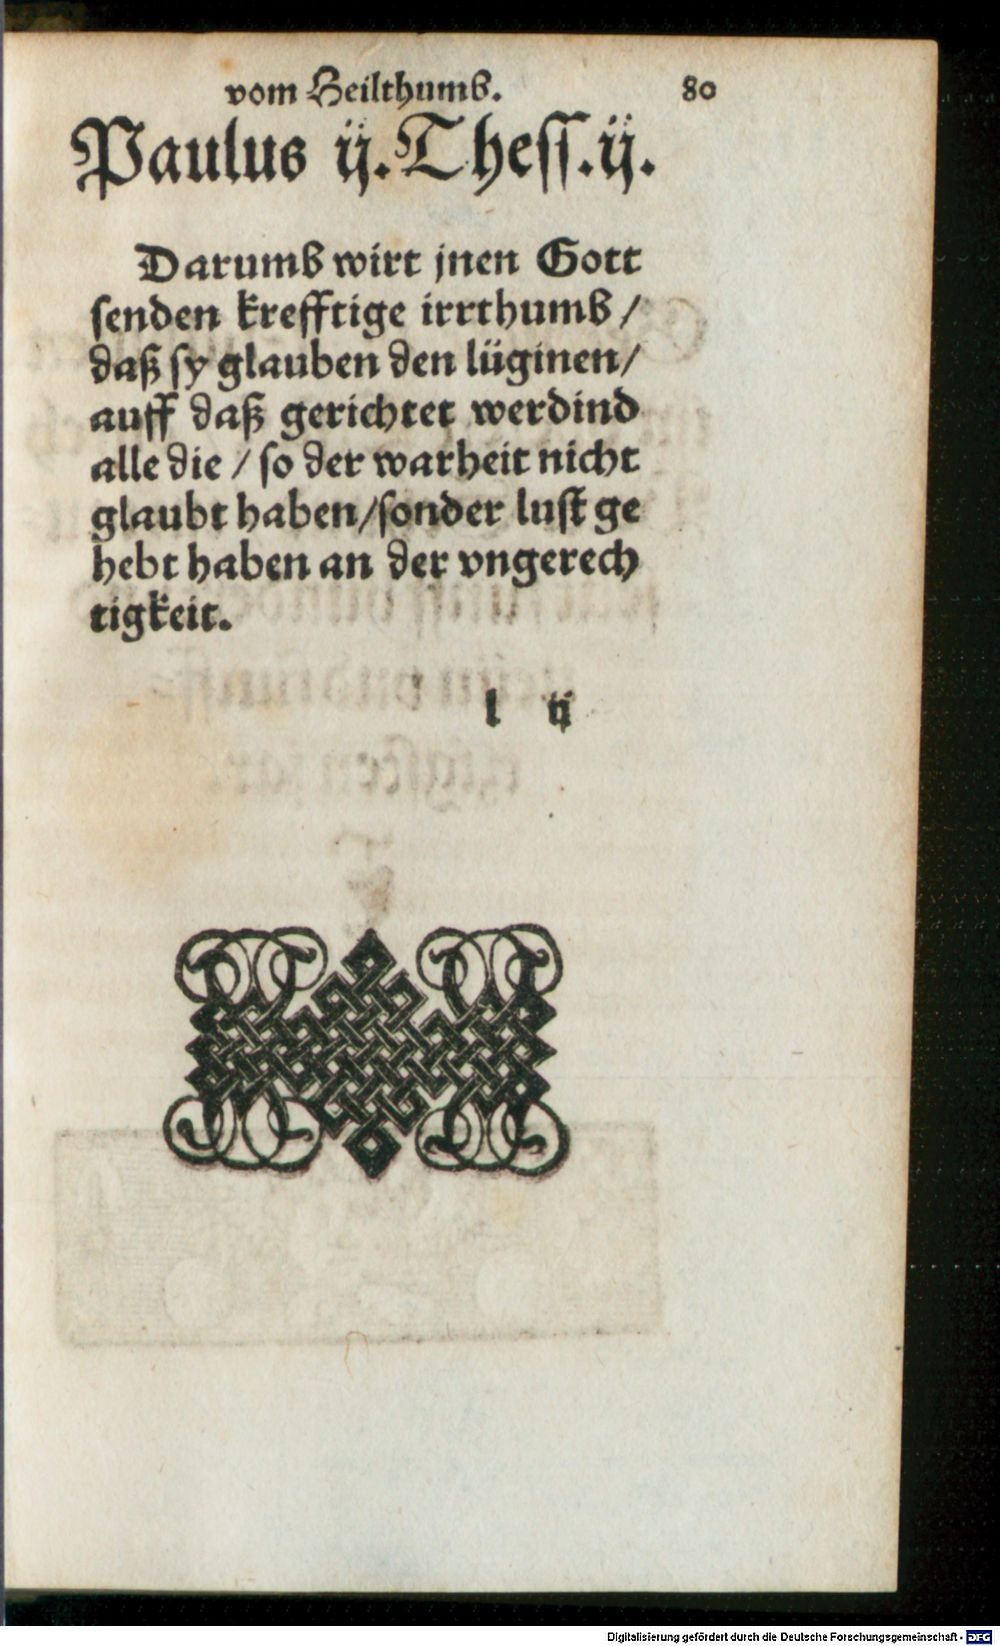 vom Heilthumb. 80
Paulus ij. Thess. ij.
Darumb wirt jnen Gott
senden krefftige irrthumb /
daß sy glauben den lüginen /
auff daß gerichtet werdind
alle die / so der warheit nicht
glaubt haben / sonder lust ge
hebt haben an der vngerech
tigkeit.
l ij
Digitalisierung gefördert durch die Deutsche Forschungsgemeinschaft - DFG